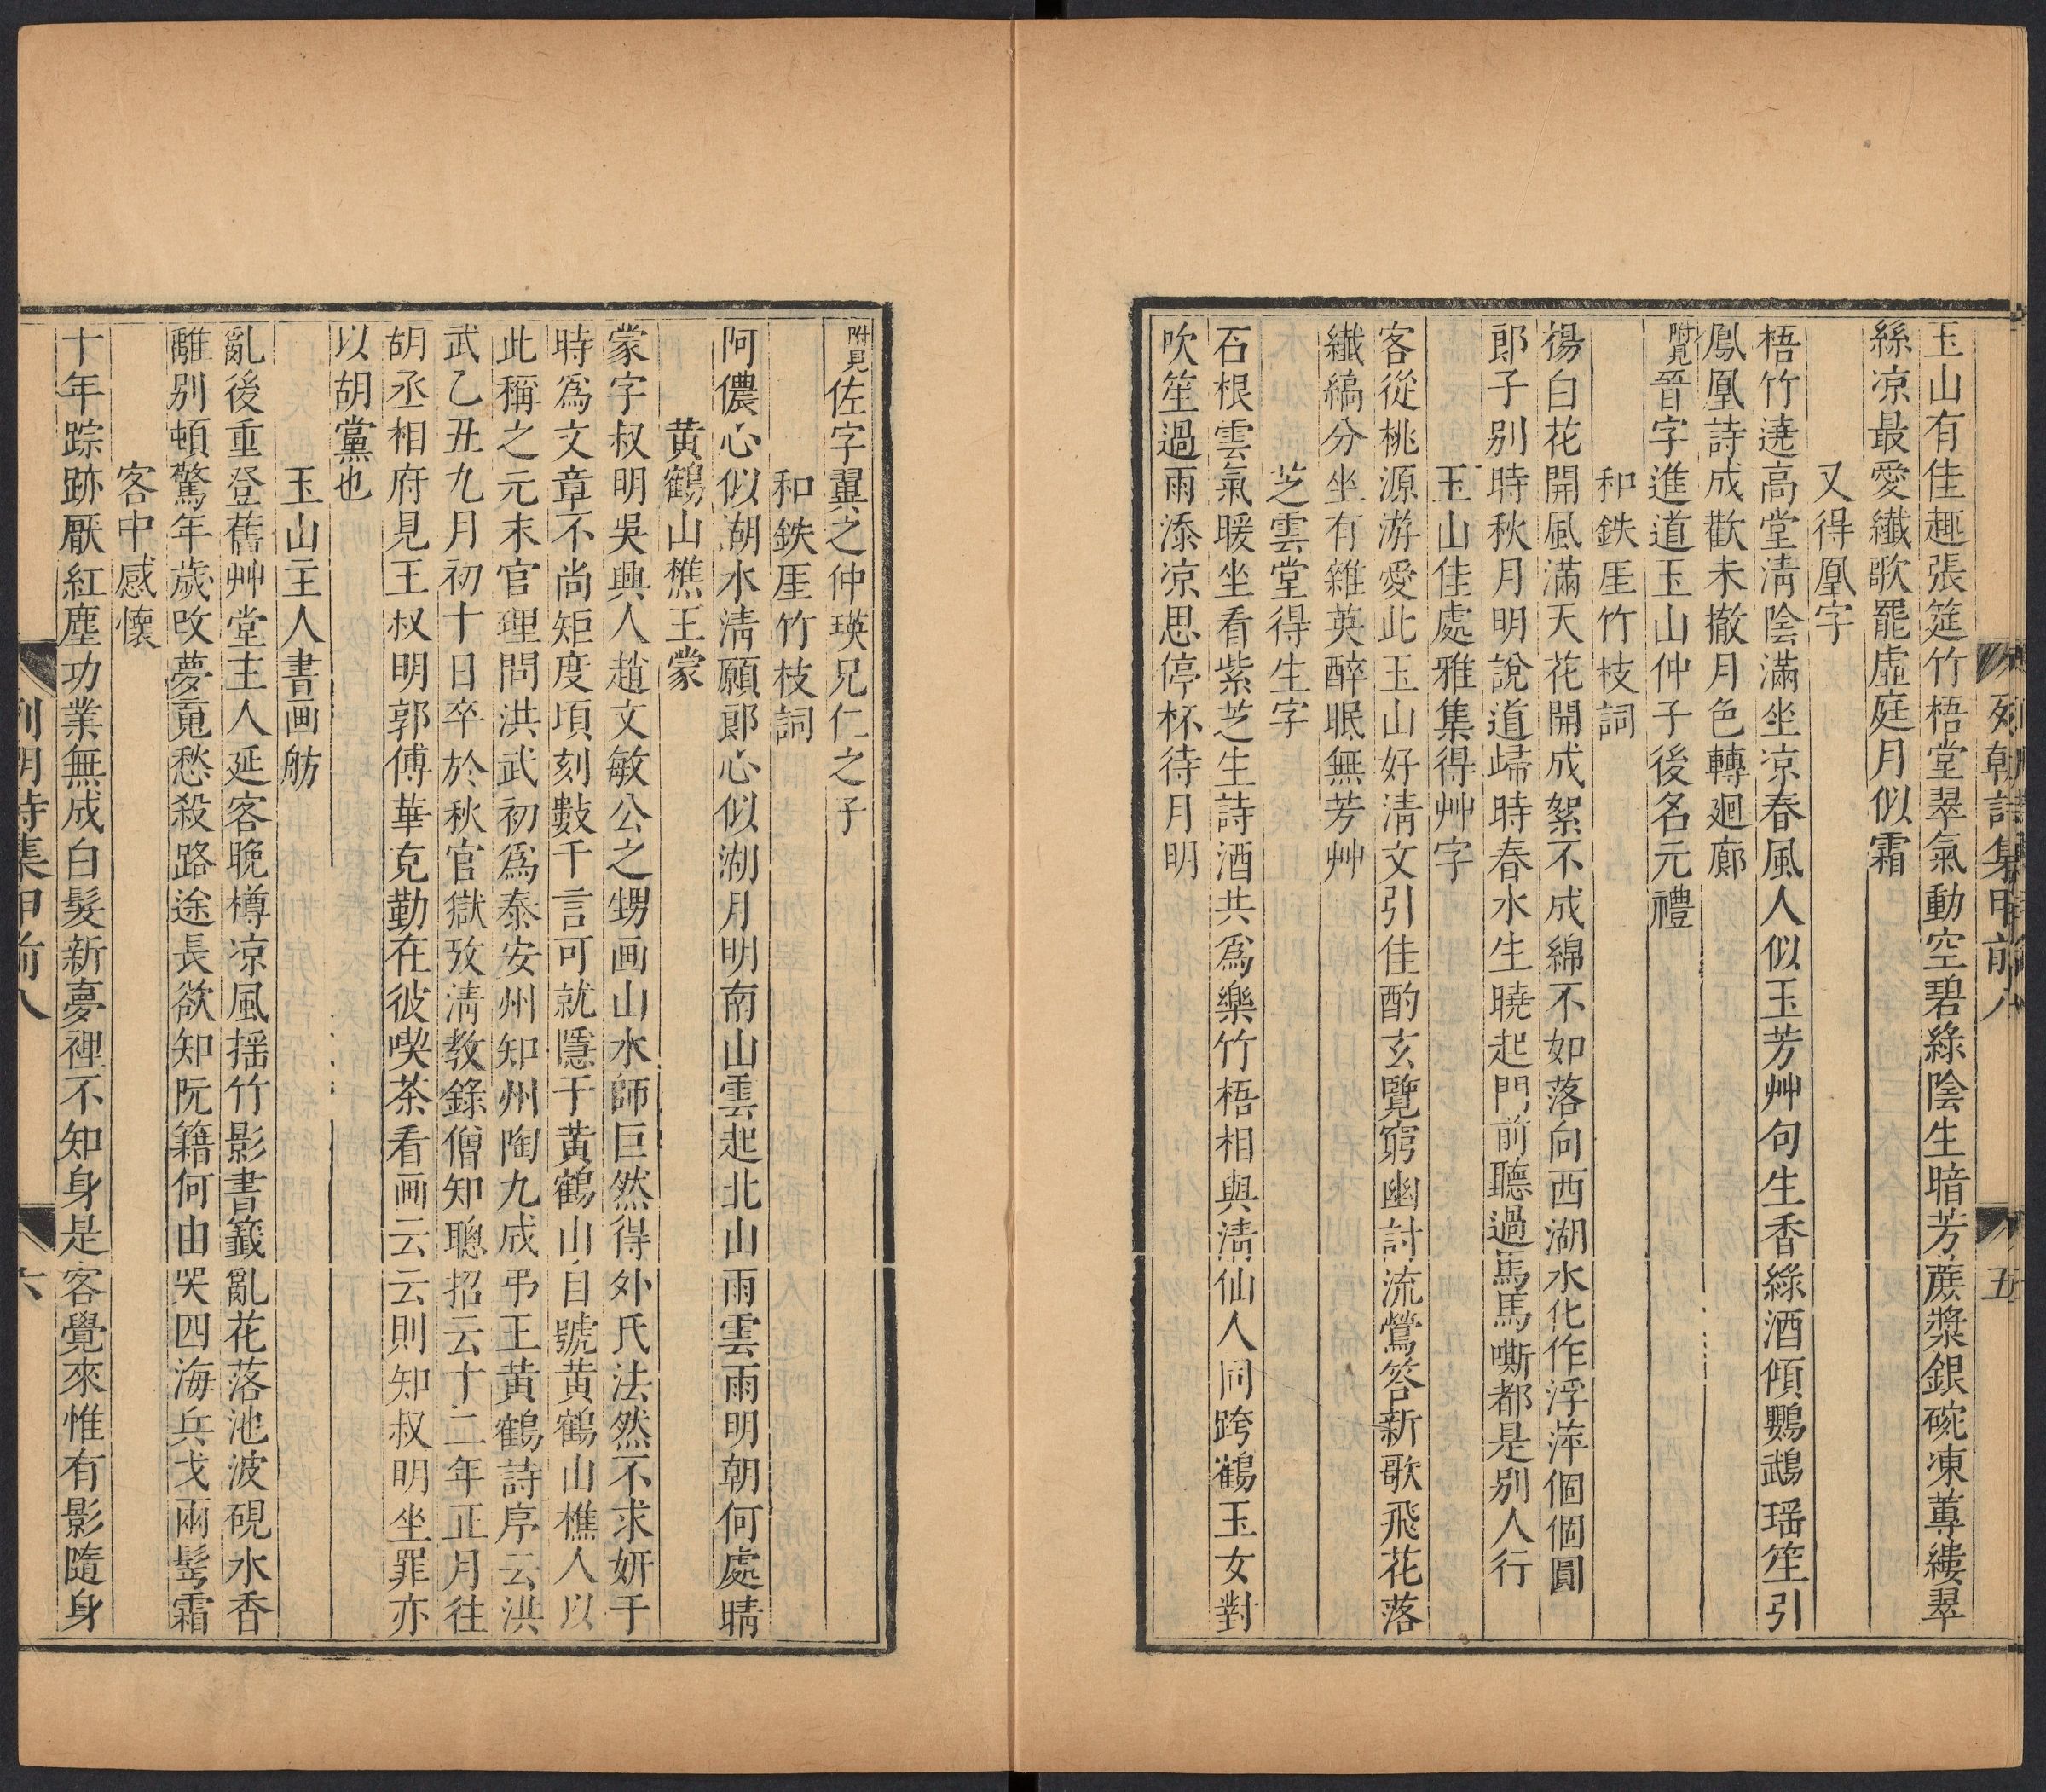 列朝詩集甲前八
五
玉山有佳趣張筵竹梧堂翠氣動空碧綠陰生暗芳蔗漿銀碗凍蓴縷翠
絲凉最愛纖歌罷虛庭月似霜
又得凰字
梧竹遶高堂淸陰滿坐凉春風人似玉芳艸句生香綠酒傾鸚鵡瑶笙引
鳳凰詩成歡未撤月色轉廻廊
附見晉字進道玉山仲子後名元禮
和鉄厓竹枝詞
楊白花開風滿天花開成絮不成綿不如落向西湖水化作浮萍個個圓
郎子别時秋月明說道歸時春水生曉起門前聽過馬馬嘶都是别人行
玉山佳處雅集得艸字
客從桃源游愛此玉山好淸文引佳酌玄覽窮幽討流鶯答新歌飛花落
纖縞分坐有雜英醉眠無芳艸
芝雲堂得生字
石根雲氣暖坐看紫芝生詩酒共爲樂竹梧相與淸仙人同跨鶴玉女對
吹笙過雨添凉思停杯待月明
附見佐字翼之仲瑛兄仁之子
和鉄厓竹枝詞
阿儂心似湖水淸願郞心似湖月明南山雲起北山雨雲雨明朝何處晴
黄鶴山樵王蒙
蒙字叔明吳興人趙文敏公之甥画山水師巨然得外氏法然不求妍于
時爲文章不尚矩度項刻數千言可就隱于黄鶴山自號黄鶴山樵人以
此稱之元末官理問洪武初爲泰安州知州陶九成弔王黄鶴詩序云洪
武乙丑九月初十日卒於秋官獄攷淸教錄僧知聰招云十二年正月往
胡丞相府見王叔明郭傅華克勤在彼喫茶看画云云則知叔明坐罪亦
以胡黨也
玉山主人書画舫
亂後重登舊艸堂主人延客晚樽凉風揺竹影書籤亂花落池波硯水香
離别頓驚年歲改夢竟愁殺路途長欲知阮籍何由哭四海兵戈兩髩霜
客中感懷
十年踪跡厭紅塵功業無成白髮新夢裡不知身是客覺來惟有影隨身
列朝詩集甲前八
六